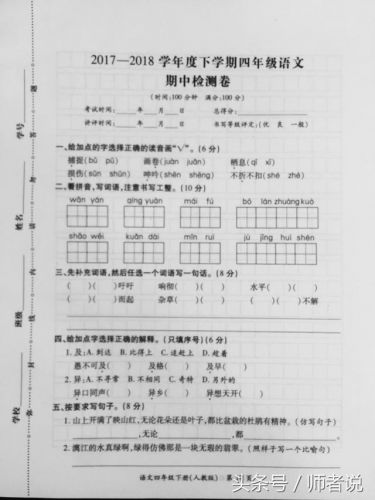 2017—2018 学年度下学期四年级语文
期中检测卷
(时间:100 分钟 满分:100 分)
考试时间:____年____月____日 总得分:____
讲评时间:____年____月____日 书写等级评定:(优 良 一般)
一、给加点的字选择正确的读音画“√”。(6 分)
捕捉(bǔ pǔ) 画卷(juàn juǎn) 栖息(qī xī)
损伤(sǔn shǔn) 呻吟(shēn shēng) 不折不扣(shé zhé)
二、看拼音,写词语,注意书写工整。(10 分)
wān yán qīng yuán mái fú bō lán zhuàng kuò
shāo wēi kuān dài mǐn ruì jù jīng huì shén
三、先补充词语,然后任选一个词语写一句话。(8 分)
( )( )吁吁 响彻( )( ) 水平( )( )
( )( )而起 杂草( )( ) ( )( )不解
四、给加点字选择正确的解释。(只填序号)(6 分)
1. 及:A. 到达 B. 比得上 C. 追赶上 D. 趁着
愚不可及( ) 及格( ) 及早( )
2. 异:A. 不寻常 B. 不相同 C. 奇特 D. 另外的
异口同声( ) 异乡( ) 异想天开( )
五、按要求写句子。(8 分)
1. 山上开满了映山红,无论花朵还是叶子,都比盆栽的杜鹃有精神。(仿写句子)
____,无论____,都____。
2. 漓江的水真绿啊,绿得仿佛那是一块无瑕的翡翠。(照样子写一个比喻句)
语文四年级下册(人教版) 第
学号
姓名
班级
学校
题
答
要
不
内
线
封
头条号 / 师者说